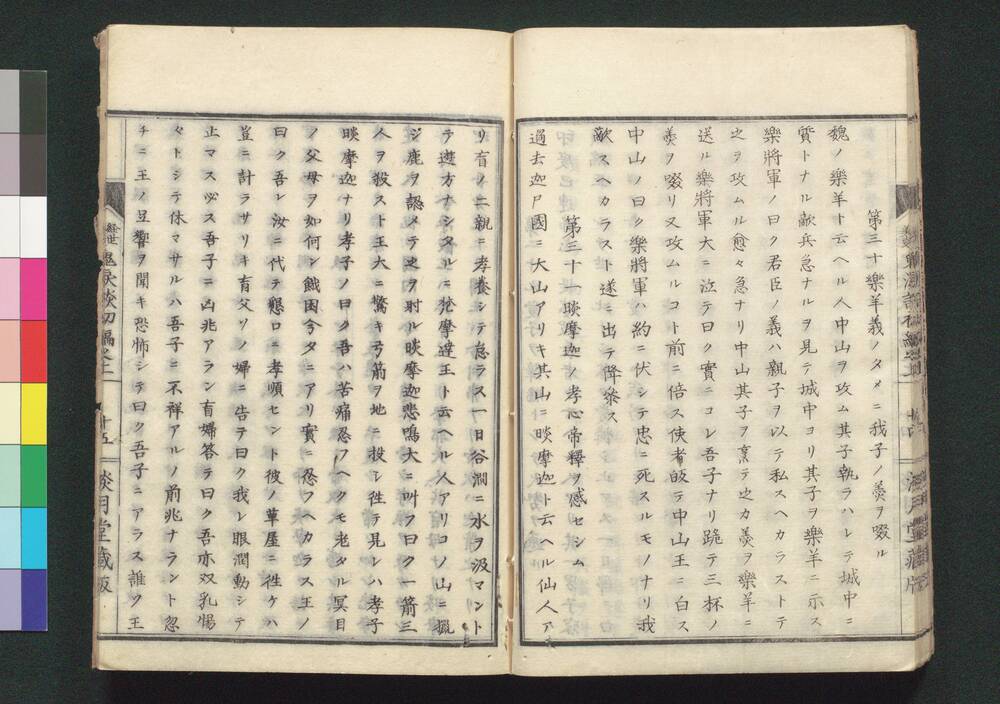 第三十樂羊義ノタメニ我子ノ羮ヲ啜ル
魏ノ樂羊ト云ヘル人中山ヲ攻ム其子執ラハレテ城中ニ
質トナル敵兵急ナルヲ見テ城中ヨリ其子ヲ樂羊ニ示ス
樂將軍ノ曰ク君臣ノ義ハ親子ヲ以テ私スヘカラストテ
之ヲ攻ムル愈々急ナリ中山其子ヲ烹テ之カ羮ヲ樂羊ニ
送ル樂將軍大ニ泣テ曰ク實ニコレ吾子ナリ跪テ三杯ノ
羮ヲ啜リ又攻ムルコト前ニ倍ス使者皈テ中山王ニ白ス
中山ノ曰ク樂將軍ハ約ニ伏シテ忠ニ死スルモノナリ我
敵スヘカラスト遂ニ出テ降參ス
第三十一睒摩迦ノ孝心帝釋ヲ感セシム
過去迦尸國ニ大山アリキ其山ニ睒摩迦ト云ヘル仙人ア
リ盲ノ二親ニ孝養シテ怠ラス一日谷澗ニ水ヲ汲マント
テ遊方ナシタルニ梵摩達王ト云ヘル人アリコノ山ニ獵
シ鹿ヲ認メテ之ヲ射ル睒摩迦悲鳴大ニ叫フ曰ク一箭三
人ヲ殺スト王大ニ驚キ弓箭ヲ地ニ投シ徃テ見レハ孝子
睒摩迦ナリ孝子ノ曰ク吾ハ苦痛忍フヘクモ老タル冥目
ノ父母ヲ如何ン餓困今タニアリ實ニ忍フヘカラス王ノ
曰ク吾レ汝ニ代テ懇ロニ孝順セント彼ノ草屋ニ徃ケハ
豈ニ計ラサリキ盲父ソノ婦ニ告テ曰ク我レ眼潤動シテ
止マス必ス吾子ニ凶兆アラン盲婦答テ曰ク吾亦双乳惕
々トシテ休マサルハ吾子ニ不祥アルノ前兆ナラント忽
チニ王ノ足響ヲ聞キ恐怖シテ曰ク吾子ニアラス誰ソ王
鬼涙談初編卷之上
十五
談月堂藏版